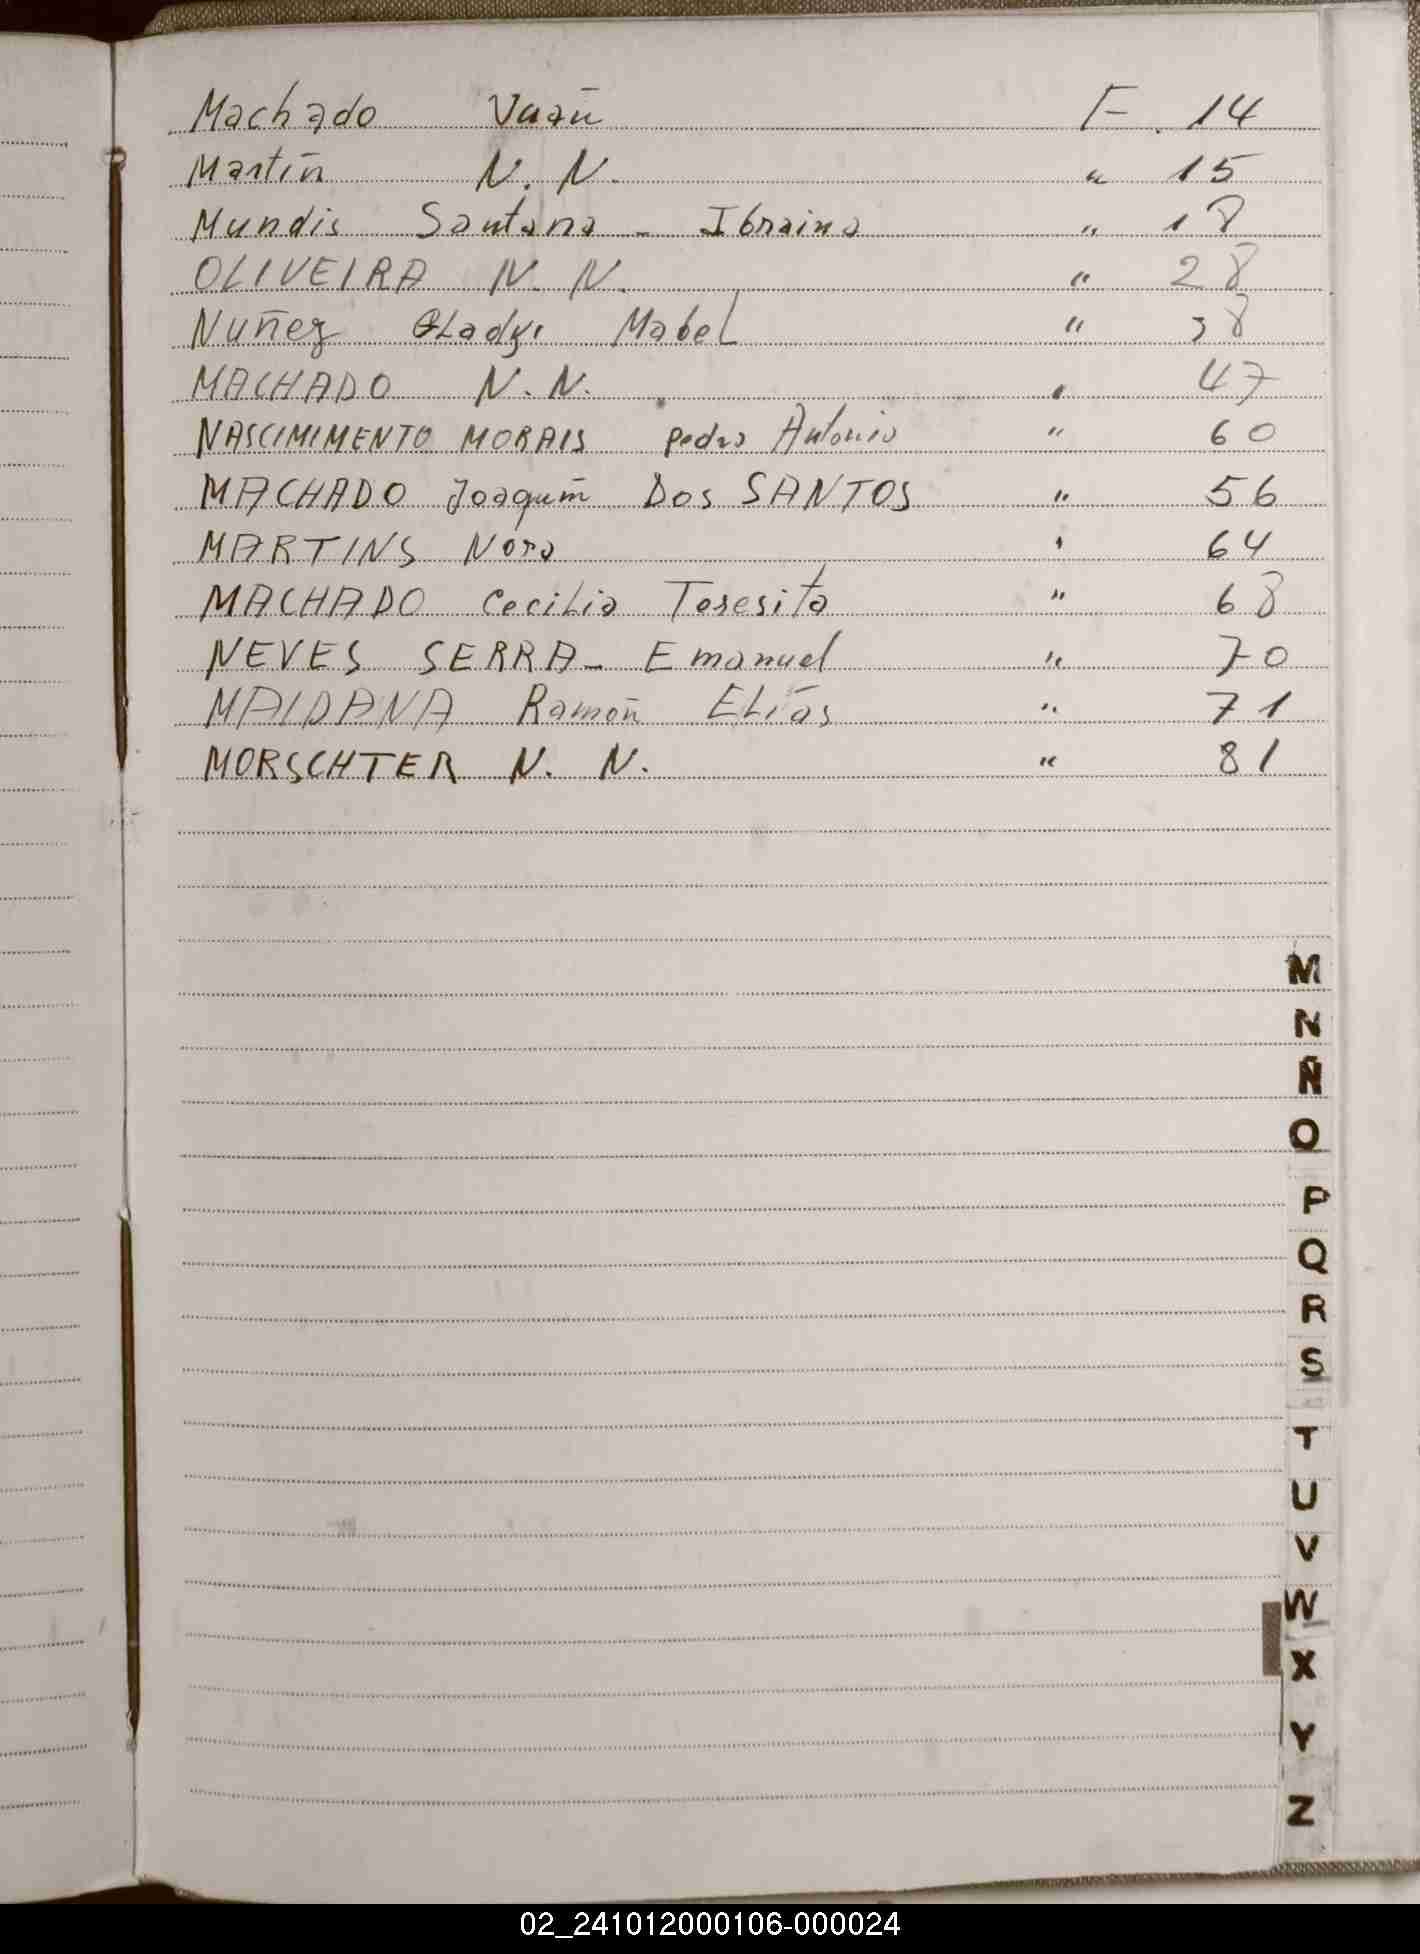 Machado Juan F. 14
Martin N. N. " 15
Mundis Santana - Ibraina " 18
OLIVEIRA N. N. " 28
Nuñez Gladys Mabel " 38
MACHADO N. N. " 47
NASCIMIMENTO MORAIS pedro Antonio " 60
MACHADO Joaquin Dos SANTOS " 56
MARTINS Nora " 64
MACHADO Cecilia Teresita " 68
NEVES SERRA - Emanuel " 70
MAIDANA Ramón Elías " 71
MORSCHTER N. N. " 81
M
N
Ñ
O
P
Q
R
S
T
U
V
W
X
Y
Z
02_241012000106-000024